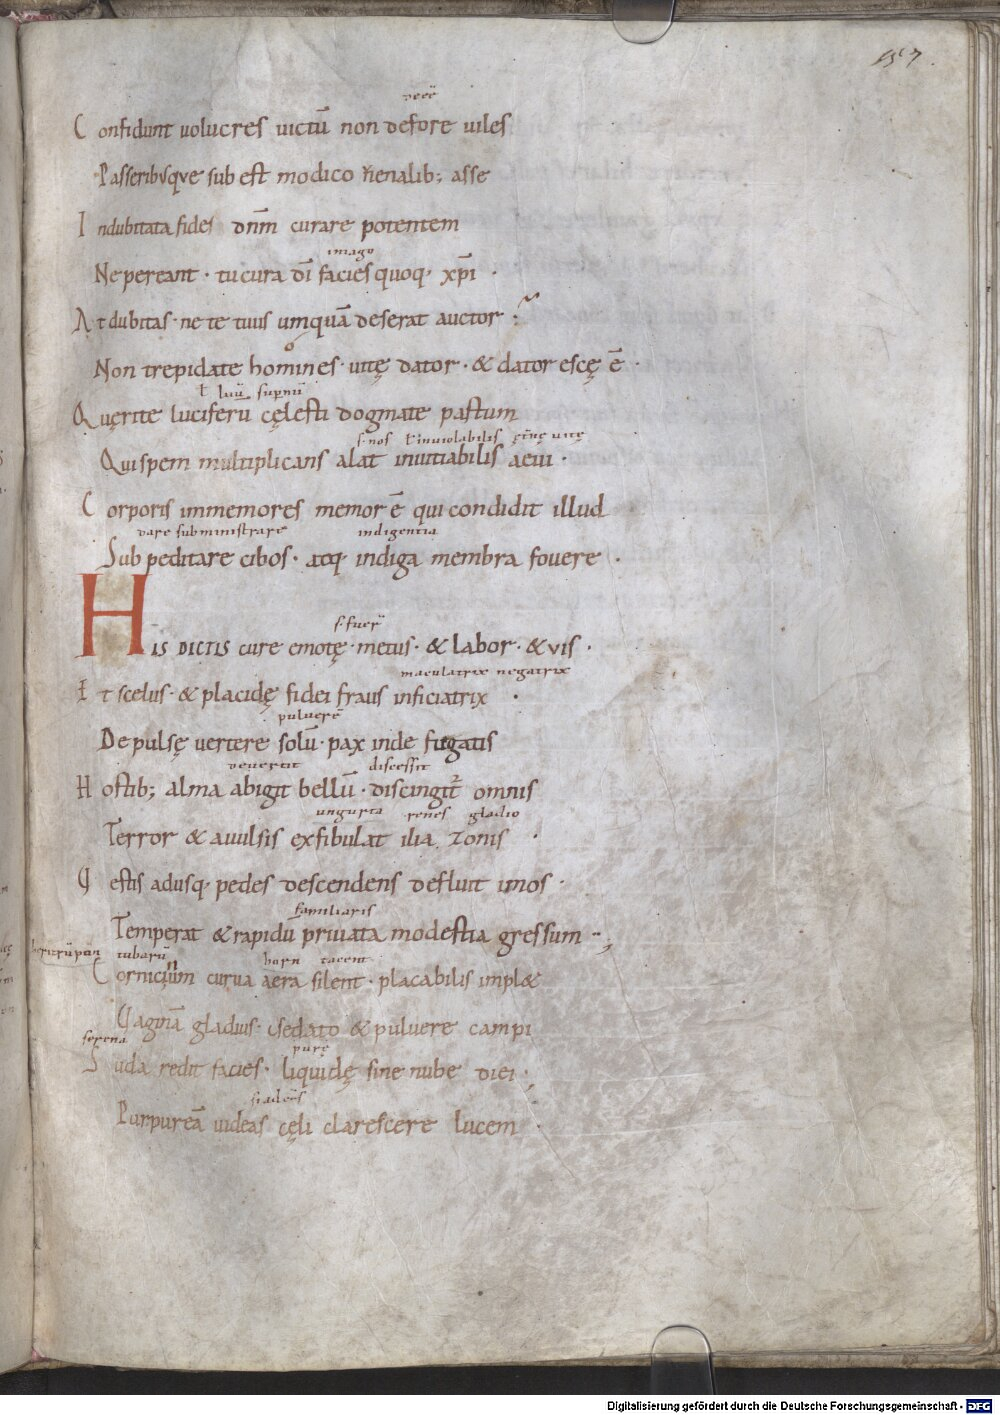 157
deeē
Confidunt uolucres uictū non defore uiles
Passeribusque sub est modico uenalib; asse
Indubitata fides dn̄m curare potentem
imago
Ne pereant · tu cura dī facies quoq· xp̄i ·
At dubitas · ne te tuus umquā deserat auctor
Non trepidate homines · uitę dator · & dator escę ē ·
ł luū supnū
Quęrite luciferū cęlesti dogmate pastum
s· nos ł inuiolabilis ęt̄nę uitę
Qui spem multiplicans alat inuitiabilis aeui ·
Corporis immemores memor ē qui condidit illud
dare subministrare indigentia
Sub peditare cibos · atq· indiga membra fouere ·
s· fuer̄
HIS DICTIS cure emotę · metus · & labor · & vis ·
maculatrix negatrix
Et scelus · & placidę fidei fraus inficiatrix ·
puluerē
Depulsę uertere solū · pax inde fugatis
deuertit discessit
Hostib; alma abigit bellū · discingit̄ omnis
ungurta renes gladio
Terror & auulsis exfibulat ilia zonis ·
Vestis adusq· pedes descendens defluit imos ·
familiaris
Temperat & rapidū priuata modestia gressum
tubarū horn tacent
Cornicinum curua aera silent · placabilis implæ
Vaginā gladius · sedato & puluere campi
serena purę
Suda redit facies · liquidę sine nube diei
Purpureā uideas cęli clarescere lucem ·
Digitalisierung gefördert durch die Deutsche Forschungsgemeinschaft - DFG